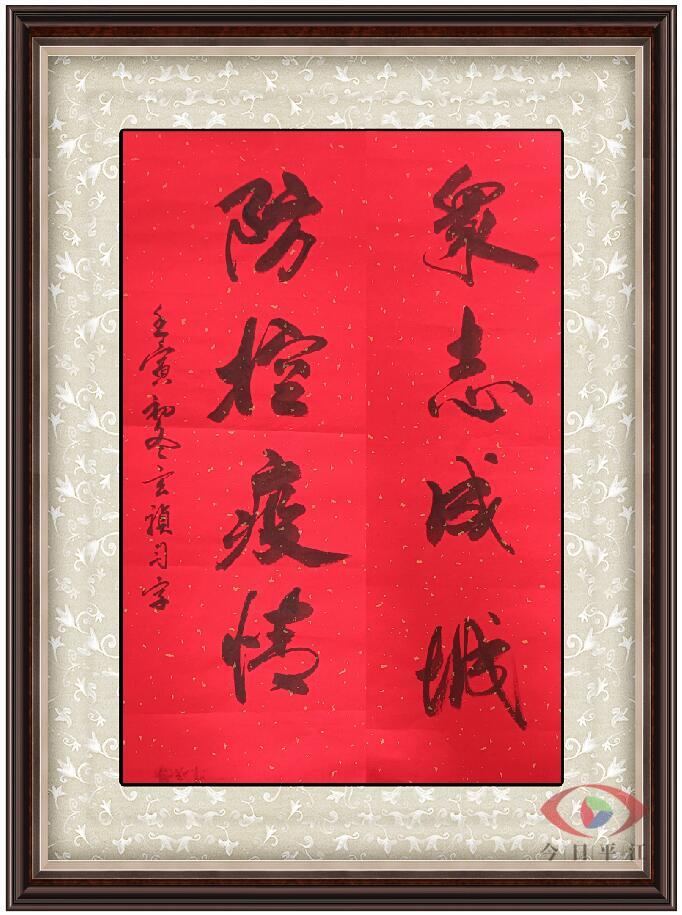 眾志成城
防控疫情
壬寅初冬玄禎習字
今日平江